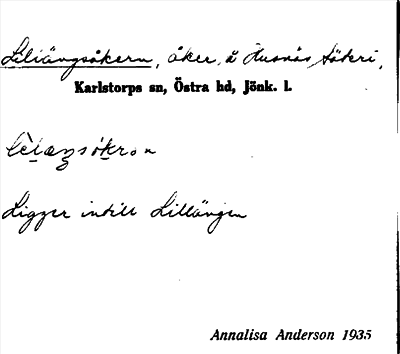 Liliängsåkern, åker, å Husnäs säteri,
Karlstorps sn, Östra hd, Jönk. l.
Ligger intill Lillängen
Annalisa Anderson 1935